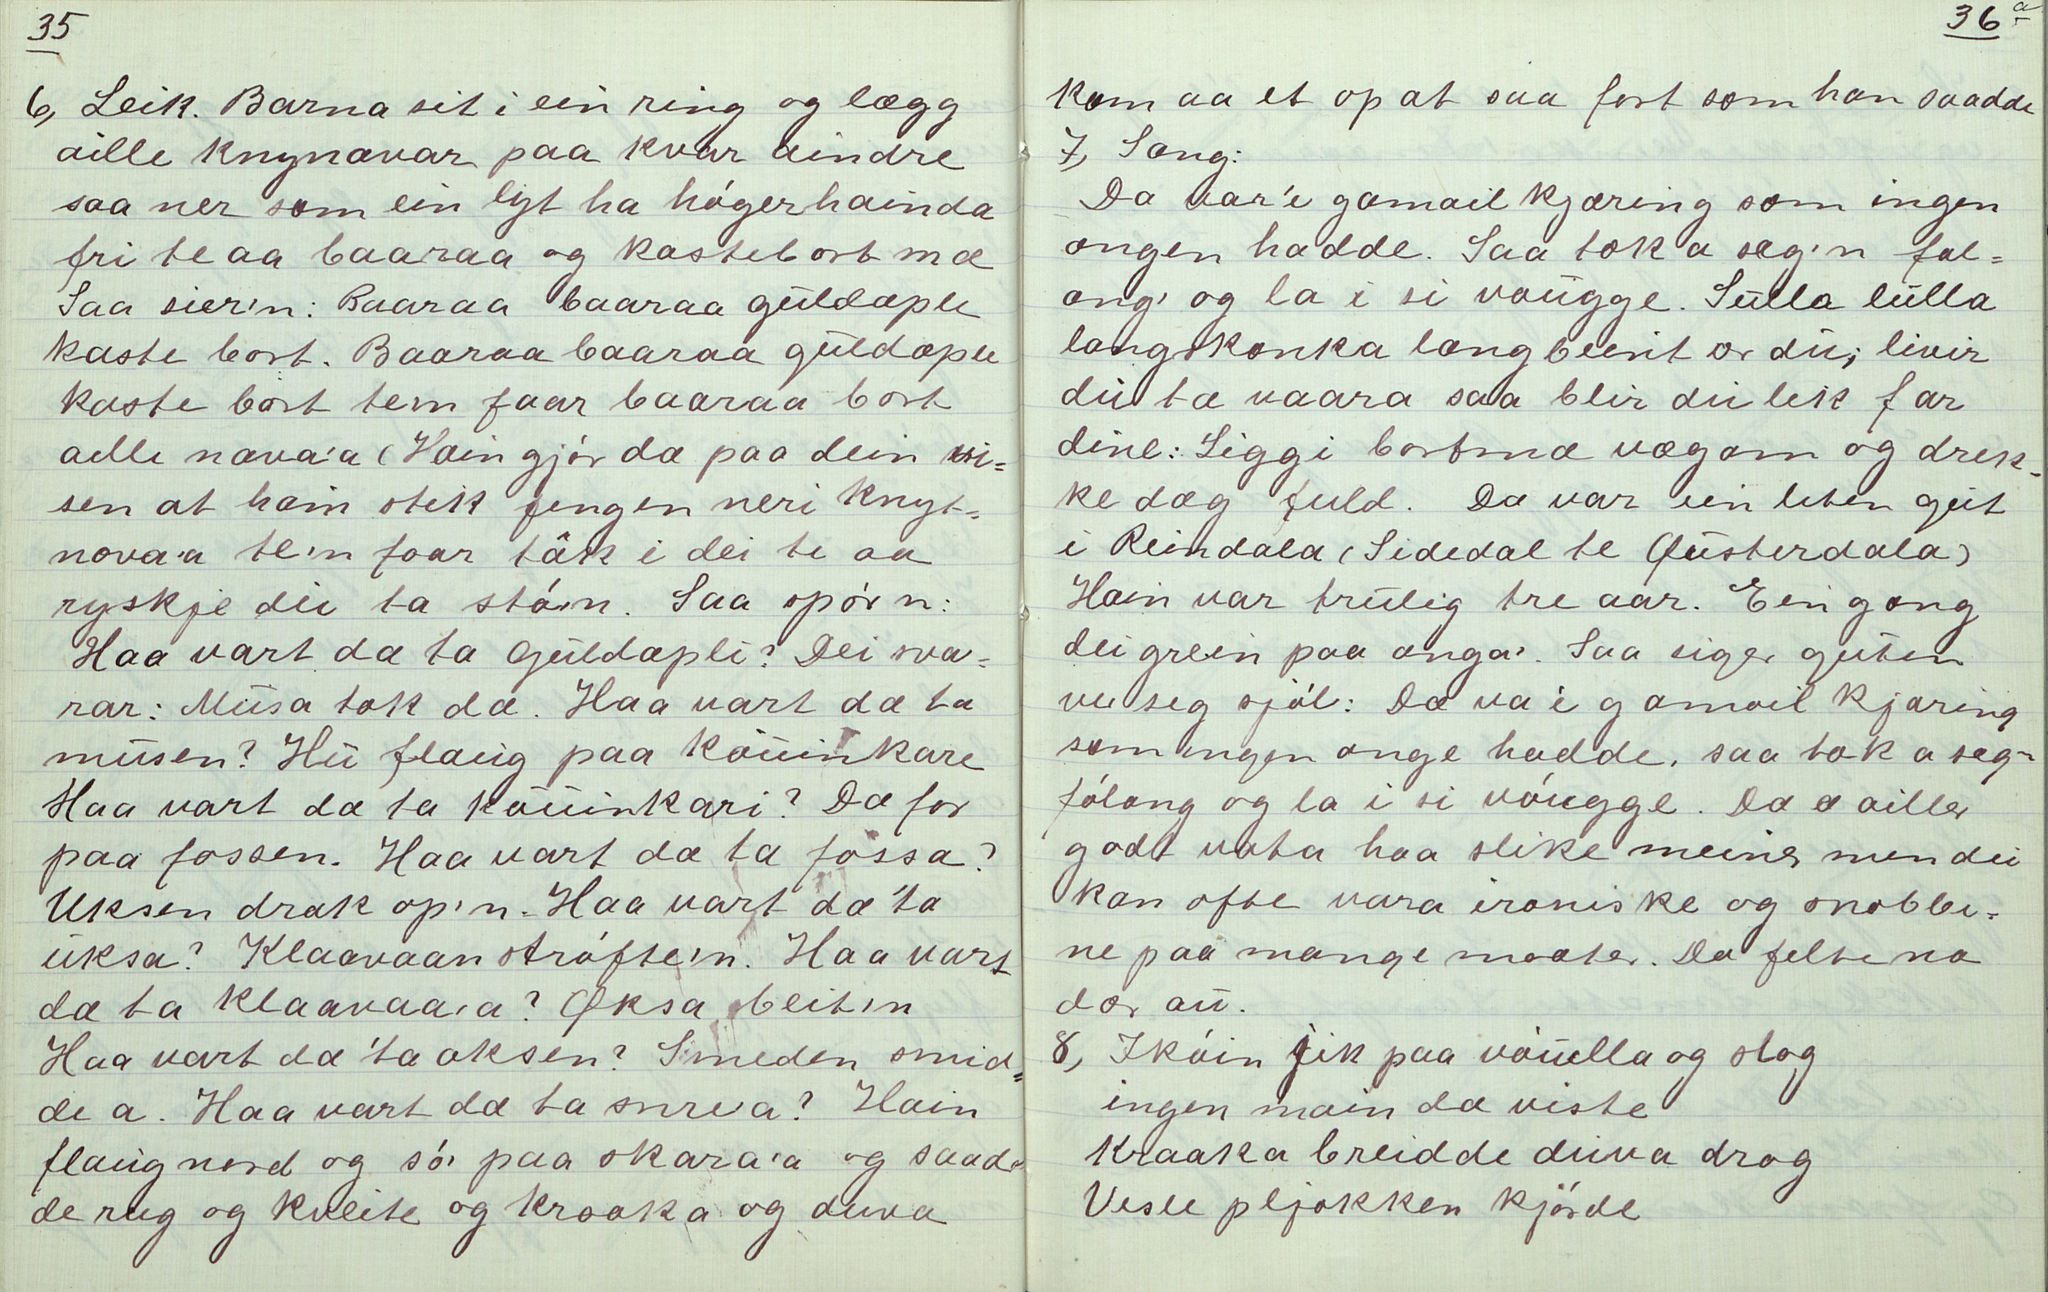 35
6, Leik. Barna sit i ein ring og lægg
aille knynavar paa kvar aindre
saa ner som ein lyt ha høgerhainda
fri te aa baaraa og kaste bort mæ
Saa sier'n: Baaraa baaraa guldæple
kaste bort. Baaraa baaraa guldæple
kaste bort tem faar baaraa bort
aille næva'a (Hain gjør da paa dein vi=
sen at hain stek fengen neri knyt=
nova'a te'n faar tâk i dei te aa
ryskje dei ta stó'n. Saa spór n:
Haa vart dæ ta guldæpli? Dei sva=
rar: Musa tok dæ. Haa vart dæ ta
musen? Hu flaug paa kóuinkare
Haa vart dæ ta kóuinkari? Dæ for
paa fossen. Haa vart dæ ta fossa?
Uksen drak op'n. Haa vart dæ'ta
uksa? Klaavaan strófte'n. Haa vart
dæ ta klaavaa'a? Øksa beit'n
Haa vart dæ'ta oksen? Smeden smid=
de a. Haa vart dæ ta smea? Hain
flaug nord og só' paa skara'a og saad=
de rug og kveite og kraaka og duva
36 a
kom aa et op at saa fort som han saadde
7, Sang:
Da var'e gamail kjæring som ingen
ongen hadde. Saa tok a sæg'n fol=
ong' og la i si vougge. Sulla lulla
langskonka langbeint ær du; livir
du ta vaara saa blir du lik far
dine: Ligg i bortmæ vægom og drek=
ke dæg fuld. Da var ein liten gut
i Reindala (Sidedal te Østerdala)
Hain var trulig tre aar. Ein gong
dei grein paa onga'. Saa siger guten
ve seg sjól: Dæ va'e gamail kjæring
som ingen onge hadde, saa tok a seg'n
fólong og la i si vóugge. Dæ æ ailler
godt veta haa slike meiner men dei
kan ofte vara ironiske og snobbe=
ne paa mange maater. Dæ felte na
dær au.
8, Ikóin jik paa vóuella og slog
ingen main dæ viste
Kraaka breidde duva drog
Vesle pljokken kjórde